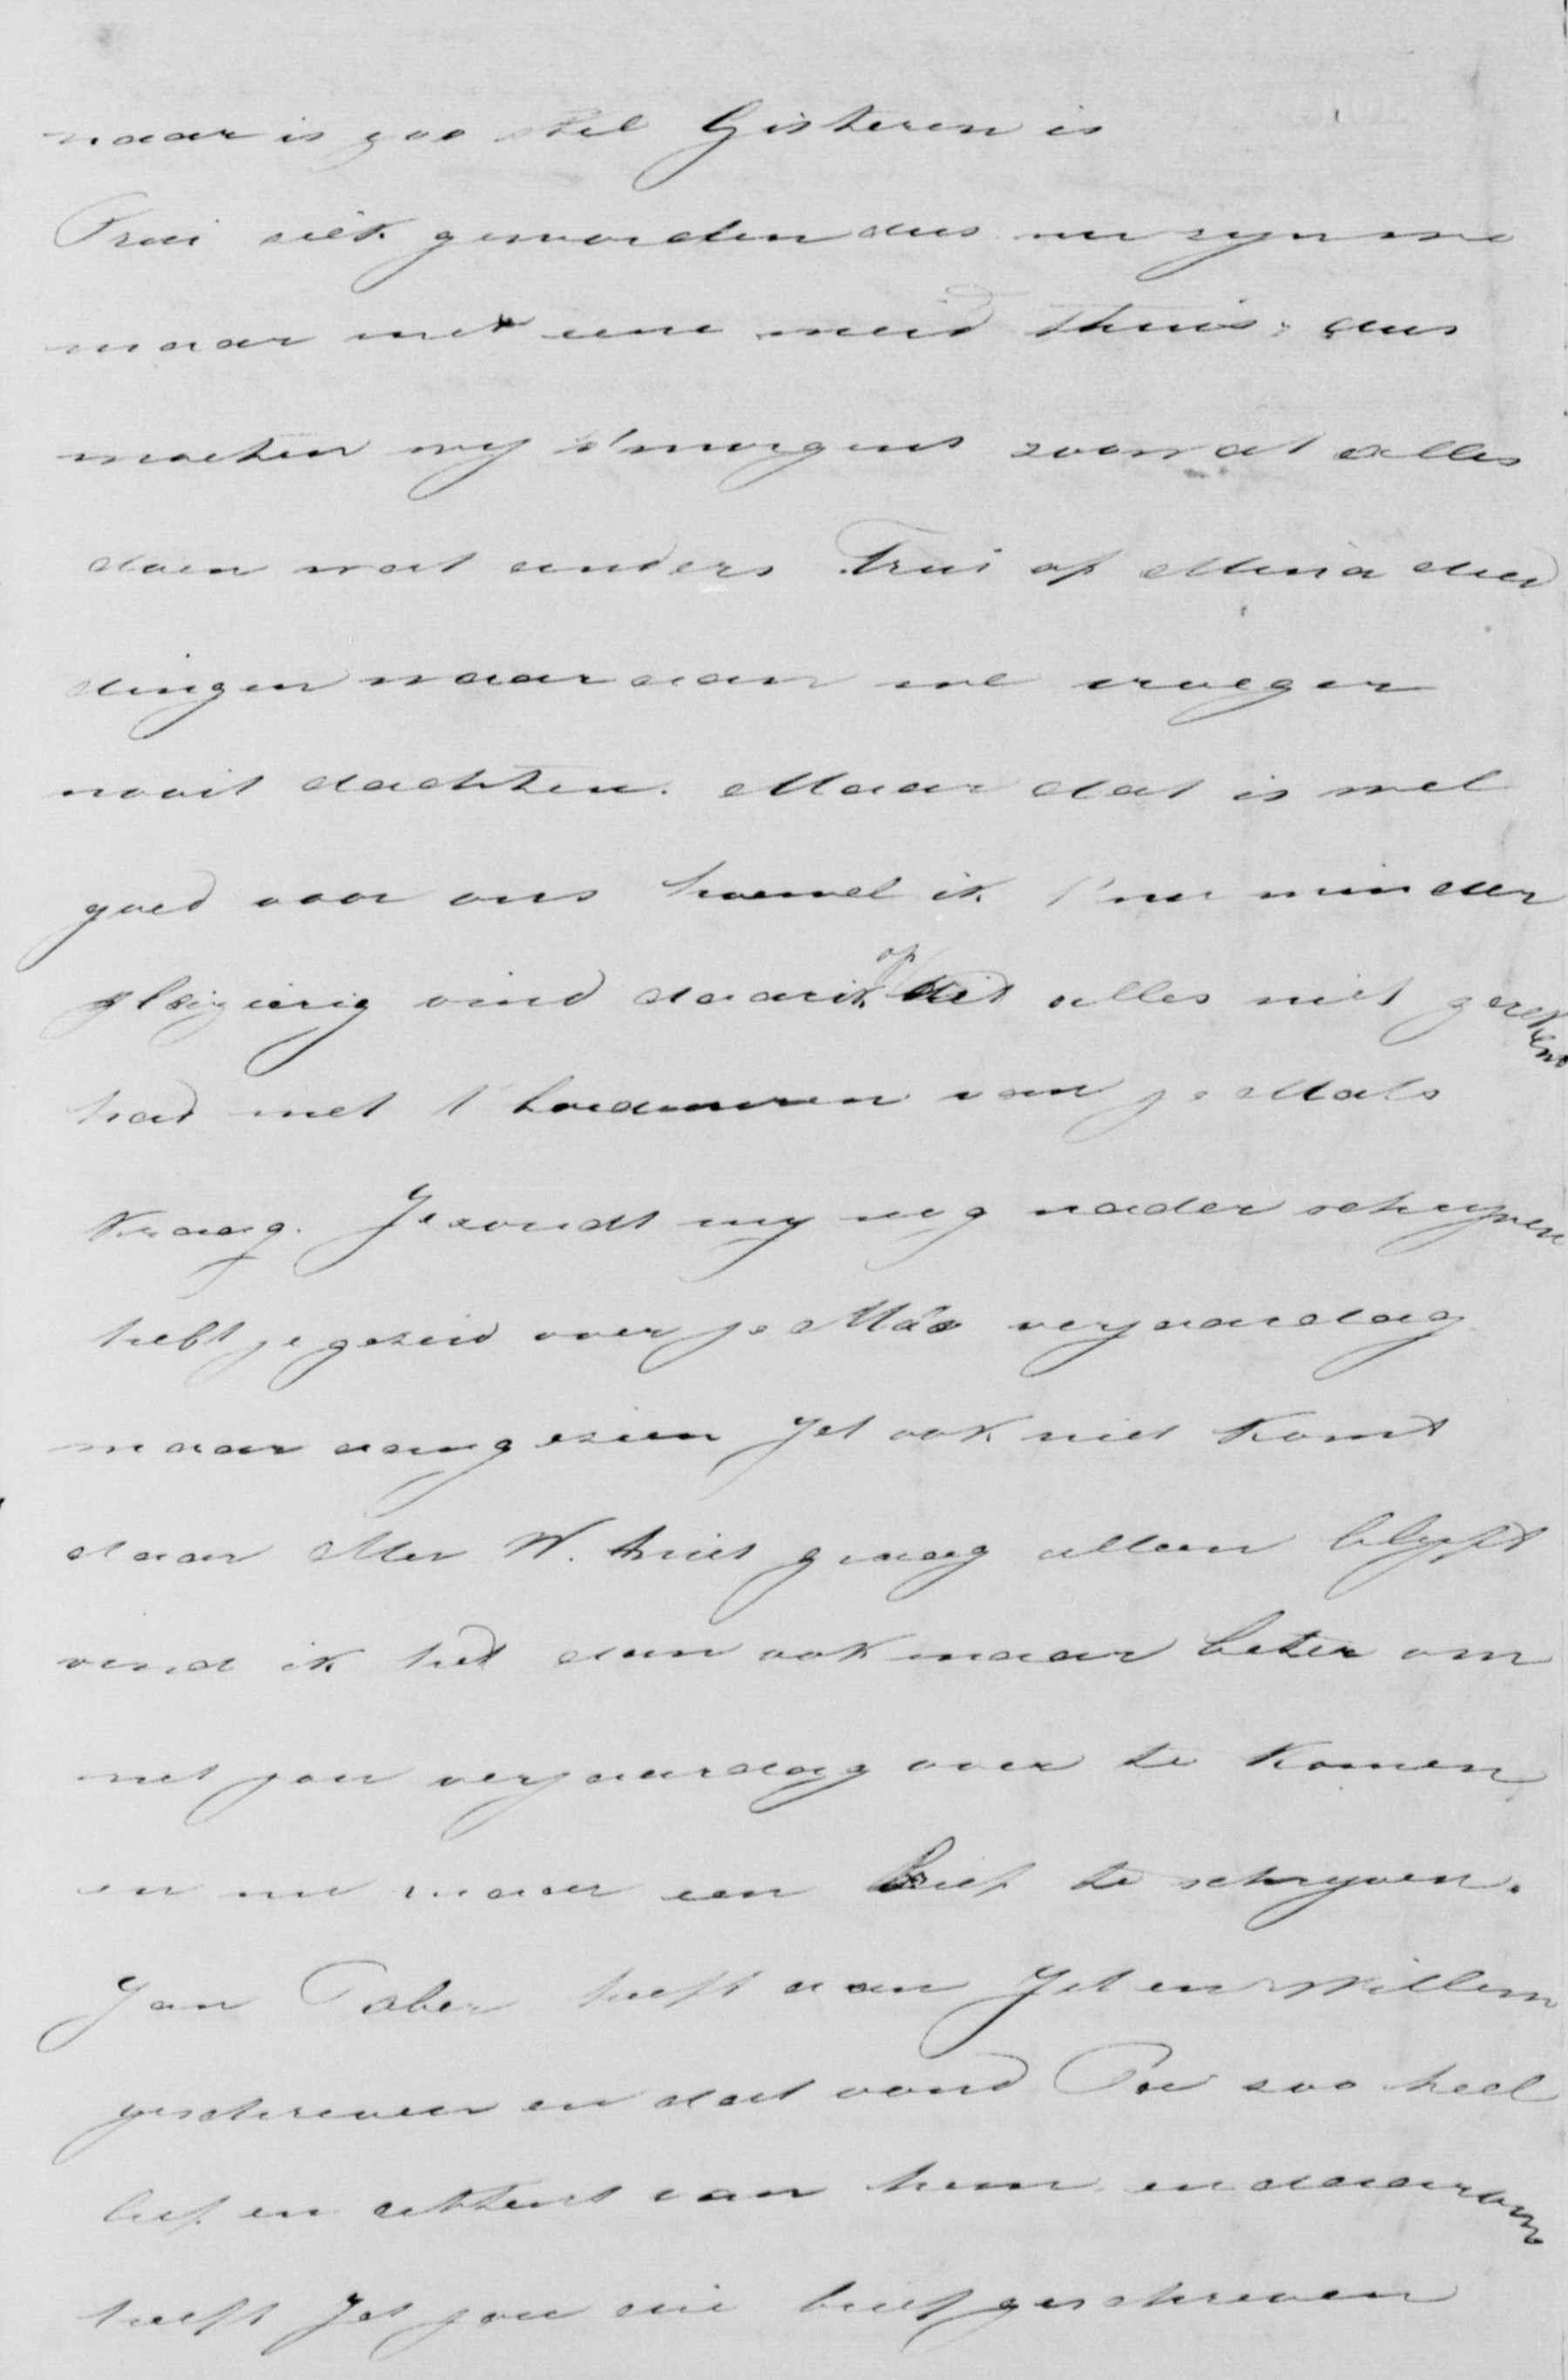 naar is zoo stil Gisteren is
Trui siek geworden dus nu zyn we
maar met eene meid thuis, dus
moeten wy s'morgens zoowat alles
doen wat anders Trui of Mina deed
dingen waaraan we vroeger
nooit dachten. Maar dat is wel
goed voor ons hoewel ik t'nu minder
plaizierig vind daar ik op dit alles niet gerekend
had met t borduuren van je Mats
kraag. Je zoudt my nog nader schryven
hebt je gezeid over je Mâs verjaardag
maar aangezien Jet ook niet komt
daar Mer W. niet graag alleen blyft
vind ik het dan ook maar beter om
met jou verjaardag over te komen
en nu maar een brief te schryven.
Jan Taber heeft aan Jet en Willem
geschreven en dat vond Pa zoo heel
lief en attent van hem en daarom
heeft Jet jou die brief geschreven